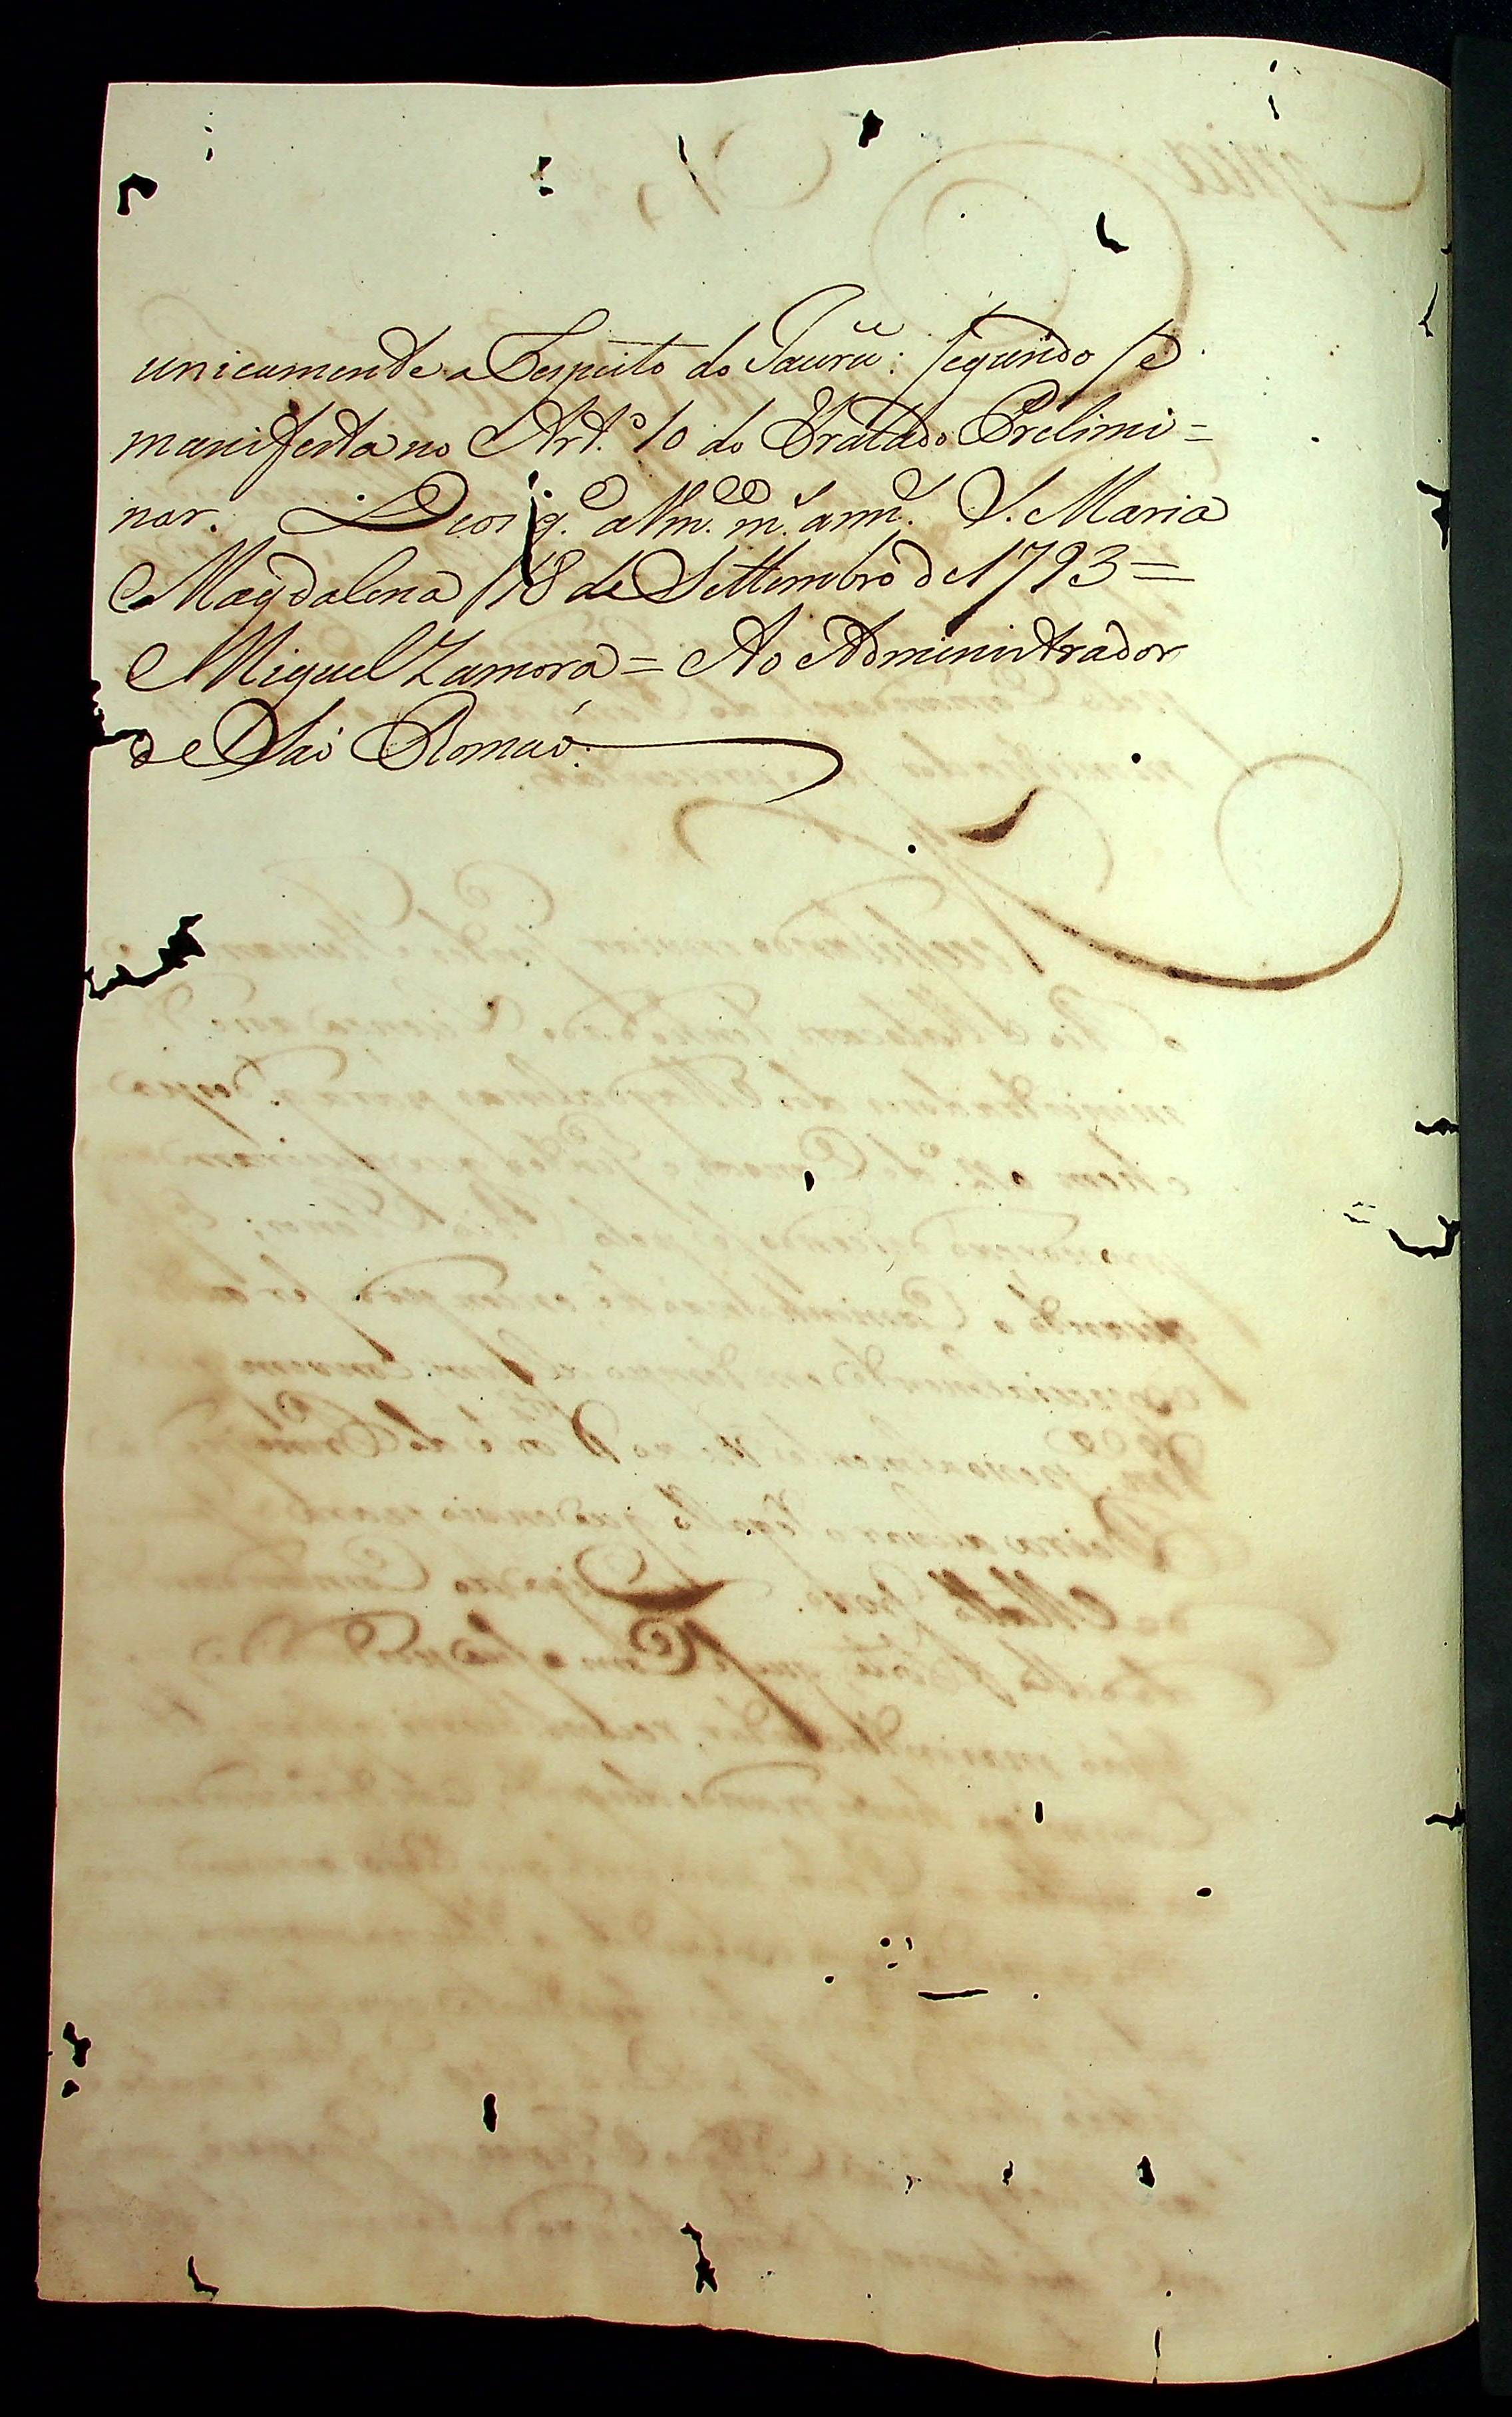 unicamente a Respeito do Jaurû: segundo se
manifesta no Art.º 10 do Tratado Prelimi=
nar. Deos g.e a Vm.ce m.s ann.s S. Maria
Magdalena 18 de Settembro de 1793=
Miguel Zamora= Ao Administrador
de Saõ Romaõ.